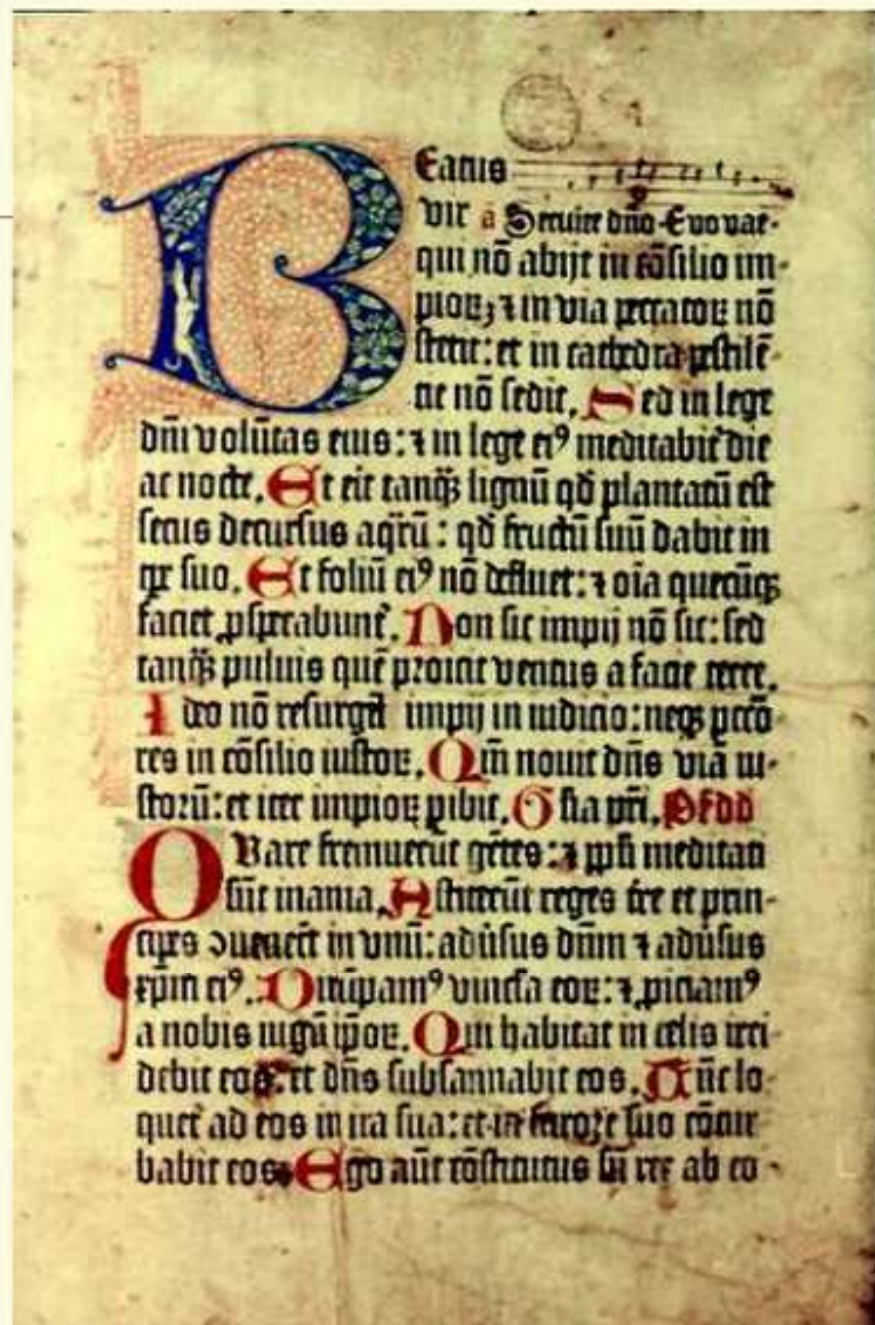 Beatus
vir a Seruite dño Euouae·
qui nõ abijt in cõsilio im-
pioꝝ; ⁊ in via peccatoꝝ nõ
stetit: et in cathedra pestilẽ-
tie nõ sedit. Sed in lege
dñi volũtas eius: ⁊ in lege eiꝰ meditabit̃ die
ac nocte. Et erit tanq̃ƺ lignũ qd̃ plantatũ est
secus decursus aq̃rũ: qd̃ fructũ suũ dabit in
tp̃e suo. Et foliũ eiꝰ nõ defluet: ⁊ oĩa quecũqƺ
faciet ꝓsperabunt̃. Non sic impij nõ sic: sed
tanq̃ƺ puluis quẽ proicit ventus a facie terre.
Ideo nõ resurgẽt impij in iudicio: neqƺ pctõ-
res in cõsilio iustoꝝ. Qm̃ nouit dñs viã iu-
storũ: et iter impioꝝ ꝑibit. Gl̃ia pr̃i. Ps̃ dd
Quare fremuerũt gẽtes: ⁊ pp̃li meditati
sũt inania. Astiterũt reges tr̃e et prin-
cipes ꝯuenerũt in vnũ: aduersus dñm ⁊ aduersus
xp̃m eiꝰ. Dirũpamꝰ vincl̃a eoꝝ: ⁊ ꝓiciamꝰ
a nobis iugũ ip̃oꝝ. Qui habitat in celis irri-
debit eos: et dñs subsannabit eos. Tũc lo-
quet̃ ad eos in ira sua: et in furore suo cõtur
babit eos. Ego aũt cõstitutus sũ rex ab eo-